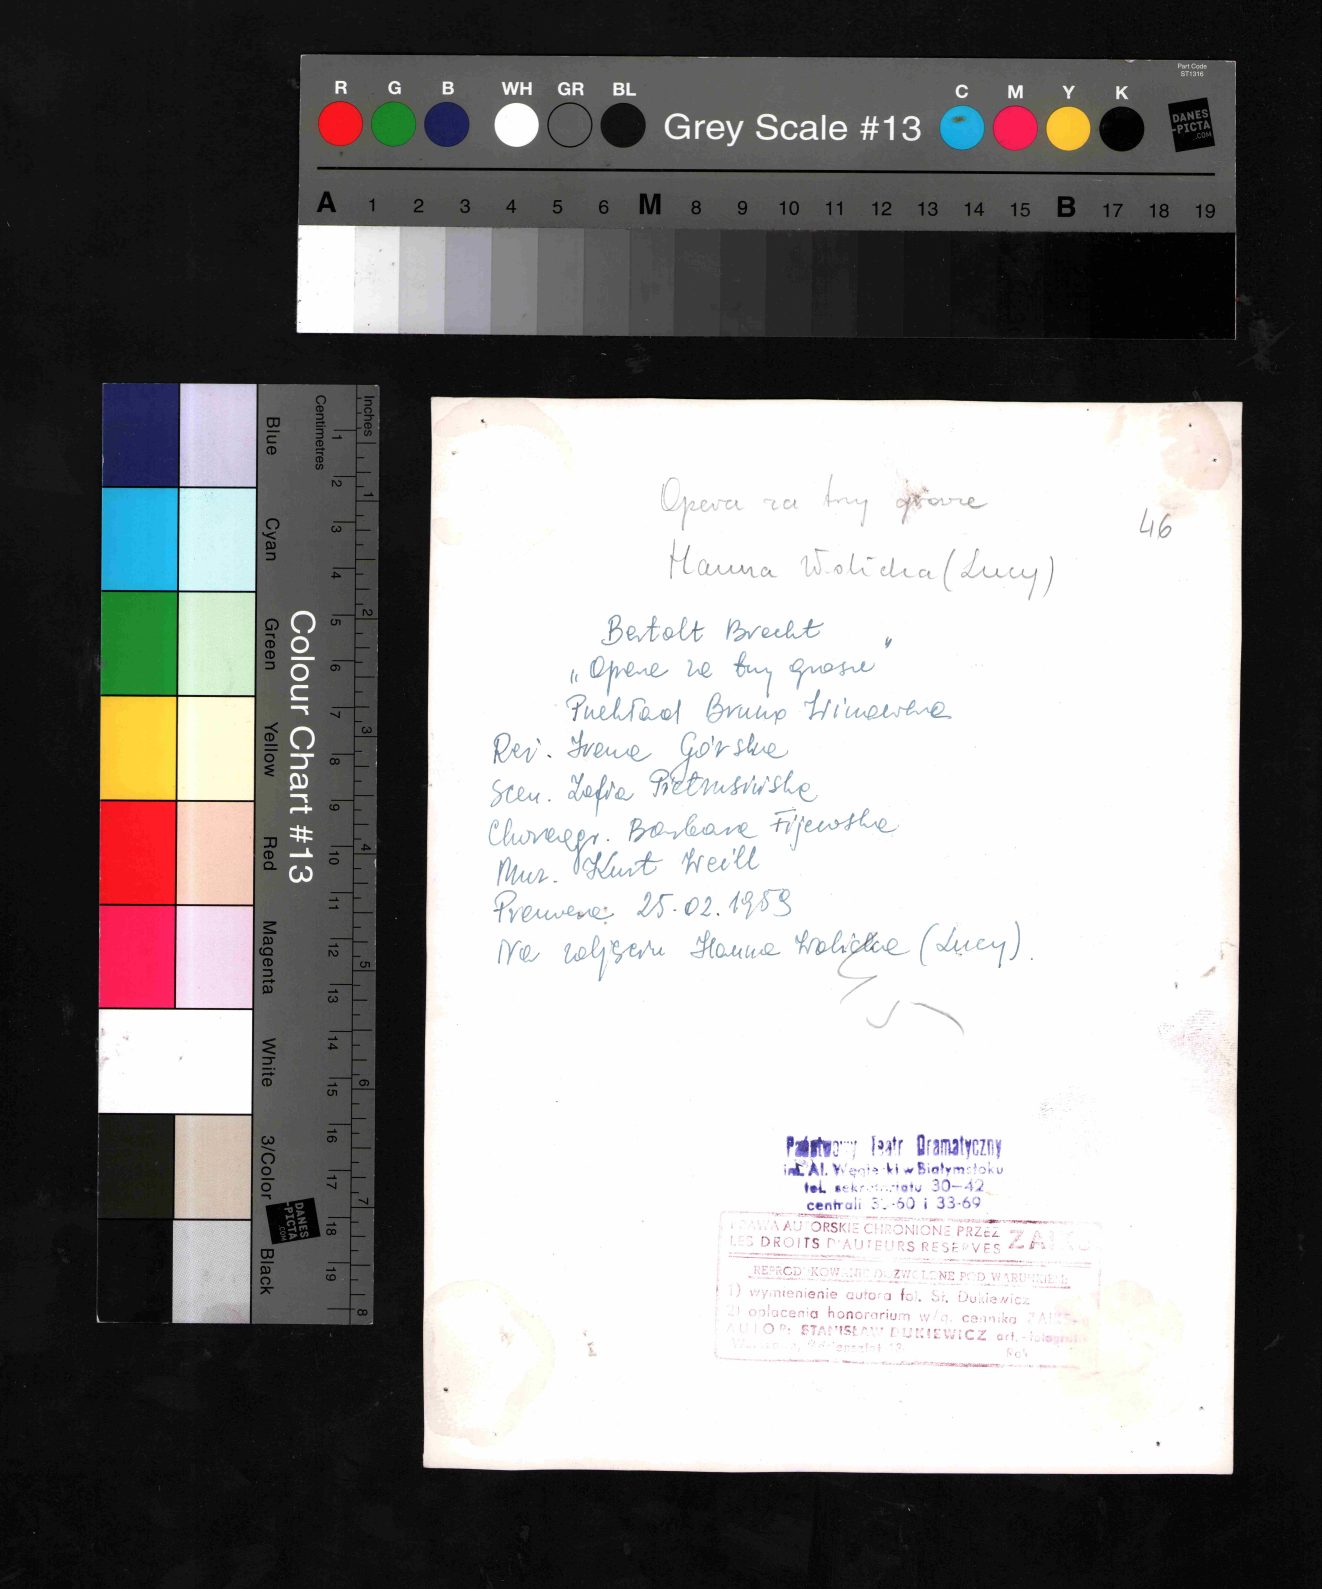 Part Code
ST1316
R G B WH GR BL
Grey Scale #13
C M Y K
DANES
-PICTA
.COM
A 1 2 3 4 5 6 M 8 9 10 11 12 13 14 15 B 17 18 19
Inches
Centimetres
1 2 3 4 5 6 7 8 9 10 11 12 13 14 15 16 17 18 19
1 2 3 4 5 6 7 8
Blue Cyan Green Yellow Red Magenta White 3/Color Black
Colour Chart #13
DANES
-PICTA
.COM
Opera za trzy grosze
46
Hanna Wolicka (Lucy)
Bertolt Brecht
„Opera za trzy grosze”
Przekład Bruno Winawera
Reż. Irena Górska
Scen. Zofia Pietrusińska
Choreogr. Barbara Fijewska
Muz. Kurt Weill
Premiera: 25.02.1959
Na zdjęciu Hanna Wolicka (Lucy).
Państwowy Teatr Dramatyczny
im. Al. Węgierki w Białymstoku
tel. sekretariatu 30-42
centrali -60 i 33-69
PRAWA AUTORSKIE CHRONIONE PRZEZ
LES DROITS D'AUTEURS RESERVES ZAIKS
REPRODUKOWANIE DOZWOLONE POD WARUNKIEM:
1) wymienienie autora fot. St. Dukiewicz
2) opłacenia honorarium w/g. cennika ZAIKS-u
AUTOR: STANISŁAW DUKIEWICZ art.-fotografik
Warszawa,
Rok